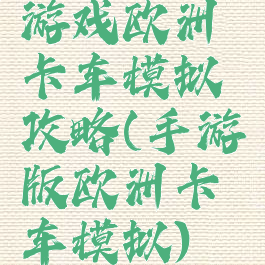 游戏欧洲
卡车模拟
攻略(手游
版欧洲卡
车模拟)